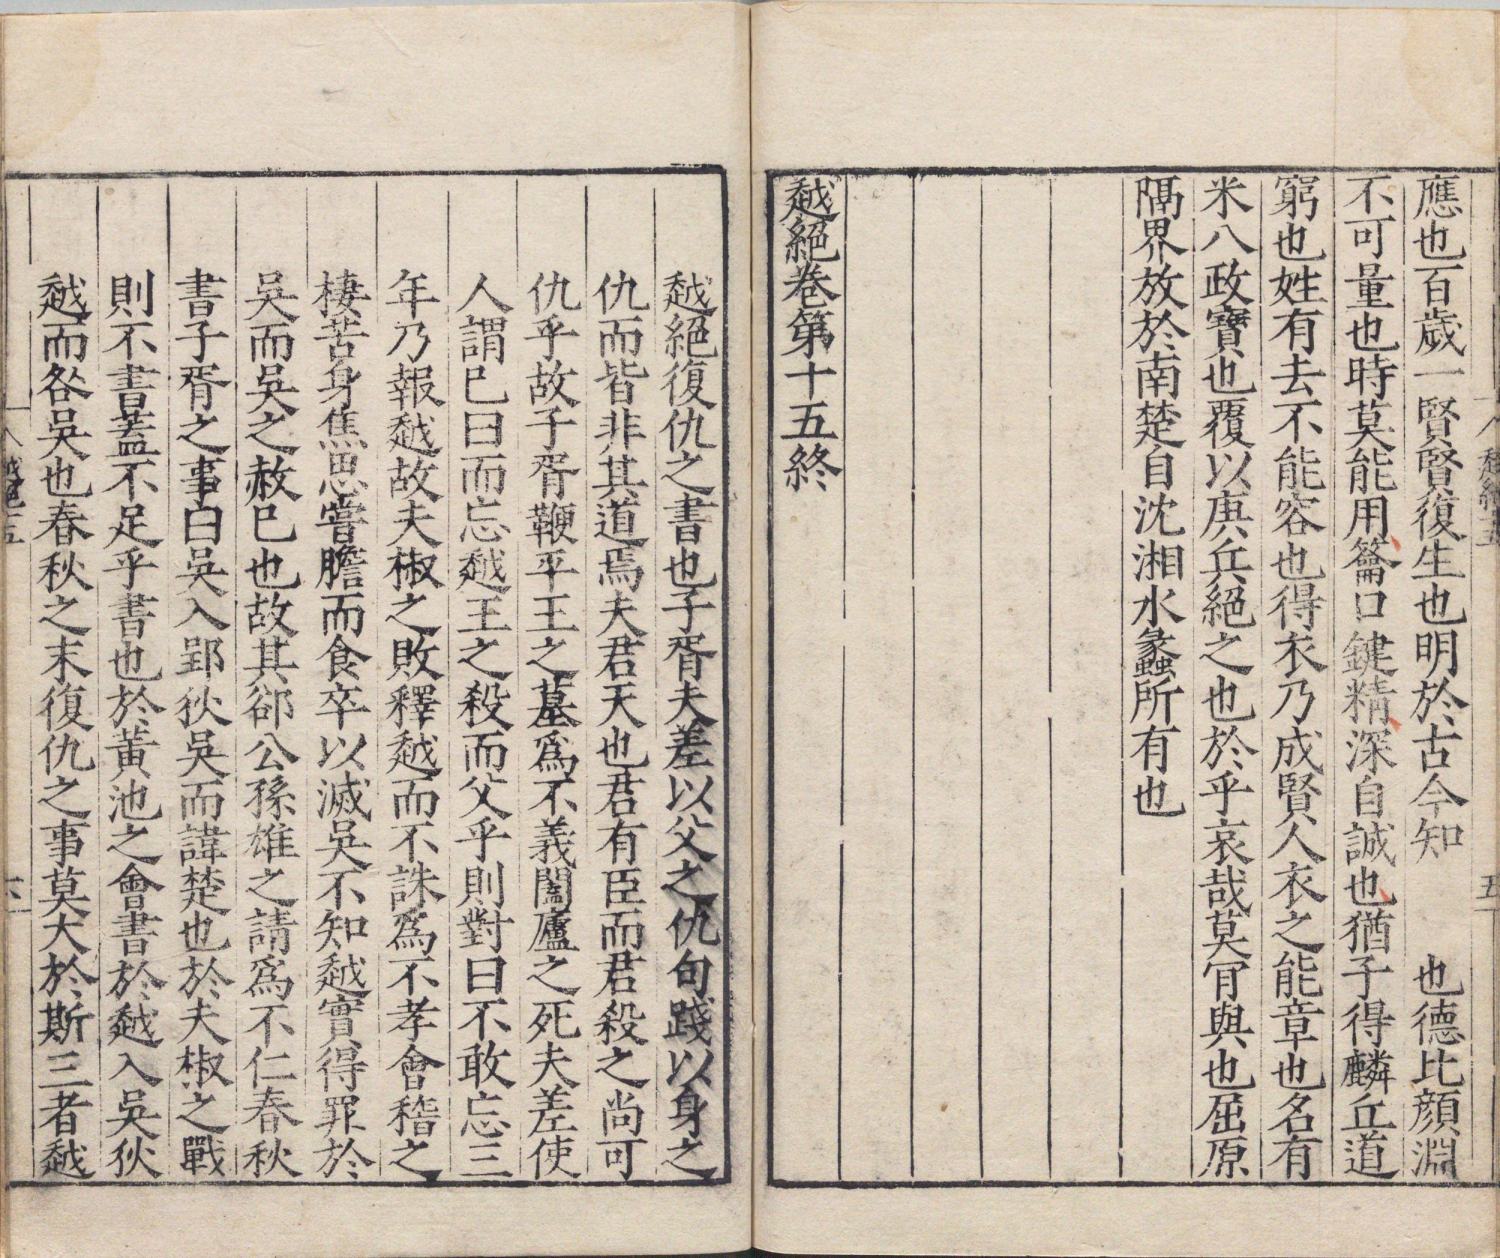 應也百歲一賢賢復生也明於古今知　　也德比顏淵
不可量也時莫能用籥口鍵精深自誠也猶子得麟丘道
窮也姓有去不能容也得衣乃成賢人衣之能章也名有
米八政寶也覆以庚兵絕之也於乎哀哉莫肎與也屈原
隔界放於南楚自沈湘水蠡所有也
越絕卷第十五終
越絕復仇之書也子胥夫差以父之仇句踐以身之
仇而皆非其道焉夫君天也君有臣而君殺之尚可
仇乎故子胥鞭平王之墓爲不義闔廬之死夫差使
人謂已曰而忘越王之殺而父乎則對曰不敢忘三
年乃報越故夫椒之敗釋越而不誅爲不孝會稽之
棲苦身焦思嘗膽而食卒以滅吳不知越實得罪於
吳而吳之赦已也故其郤公孫雄之請爲不仁春秋
書子胥之事白吳入郢狄吳而諱楚也於夫椒之戰
則不書蓋不足乎書也於黃池之會書於越入吳狄
越而咎吳也春秋之末復仇之事莫大於斯三者越